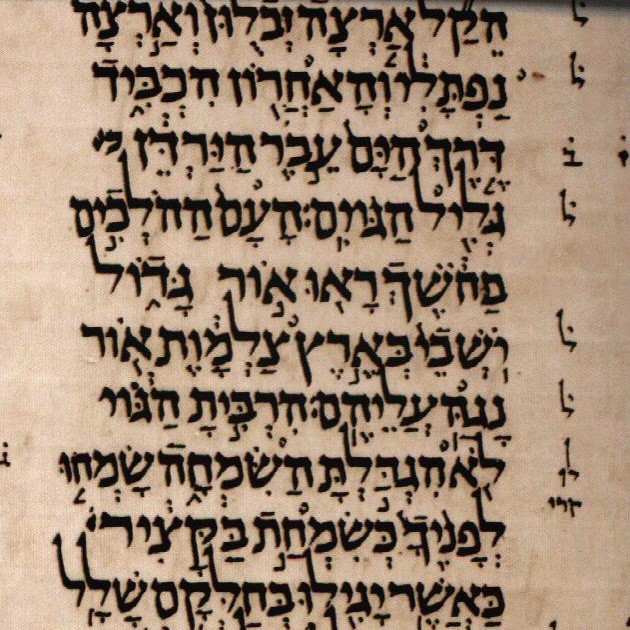 הֵקַל אַרְצָה זְבֻלוּן וְאַרְצָה
נַפְתָּלִי וְהָאַחֲרוֹן הִכְבִּיד
דֶּרֶךְ הַיָּם עֵבֶר הַיַּרְדֵּן
גְּלִיל הַגּוֹיִם׃ הָעָם הַהֹלְכִים
בַּחֹשֶׁךְ רָאוּ אוֹר גָּדוֹל
יֹשְׁבֵי בְּאֶרֶץ צַלְמָוֶת אוֹר
נָגַהּ עֲלֵיהֶם׃ הִרְבִּיתָ הַגּוֹי
לֹא הִגְדַּלְתָּ הַשִּׂמְחָה שָׂמְחוּ
לְפָנֶיךָ כְּשִׂמְחַת בַּקָּצִיר
כַּאֲשֶׁר יָגִילוּ בְּחַלְּקָם שָׁלָל
ל
ל
ב
ל
ל
ל
לו
קרי